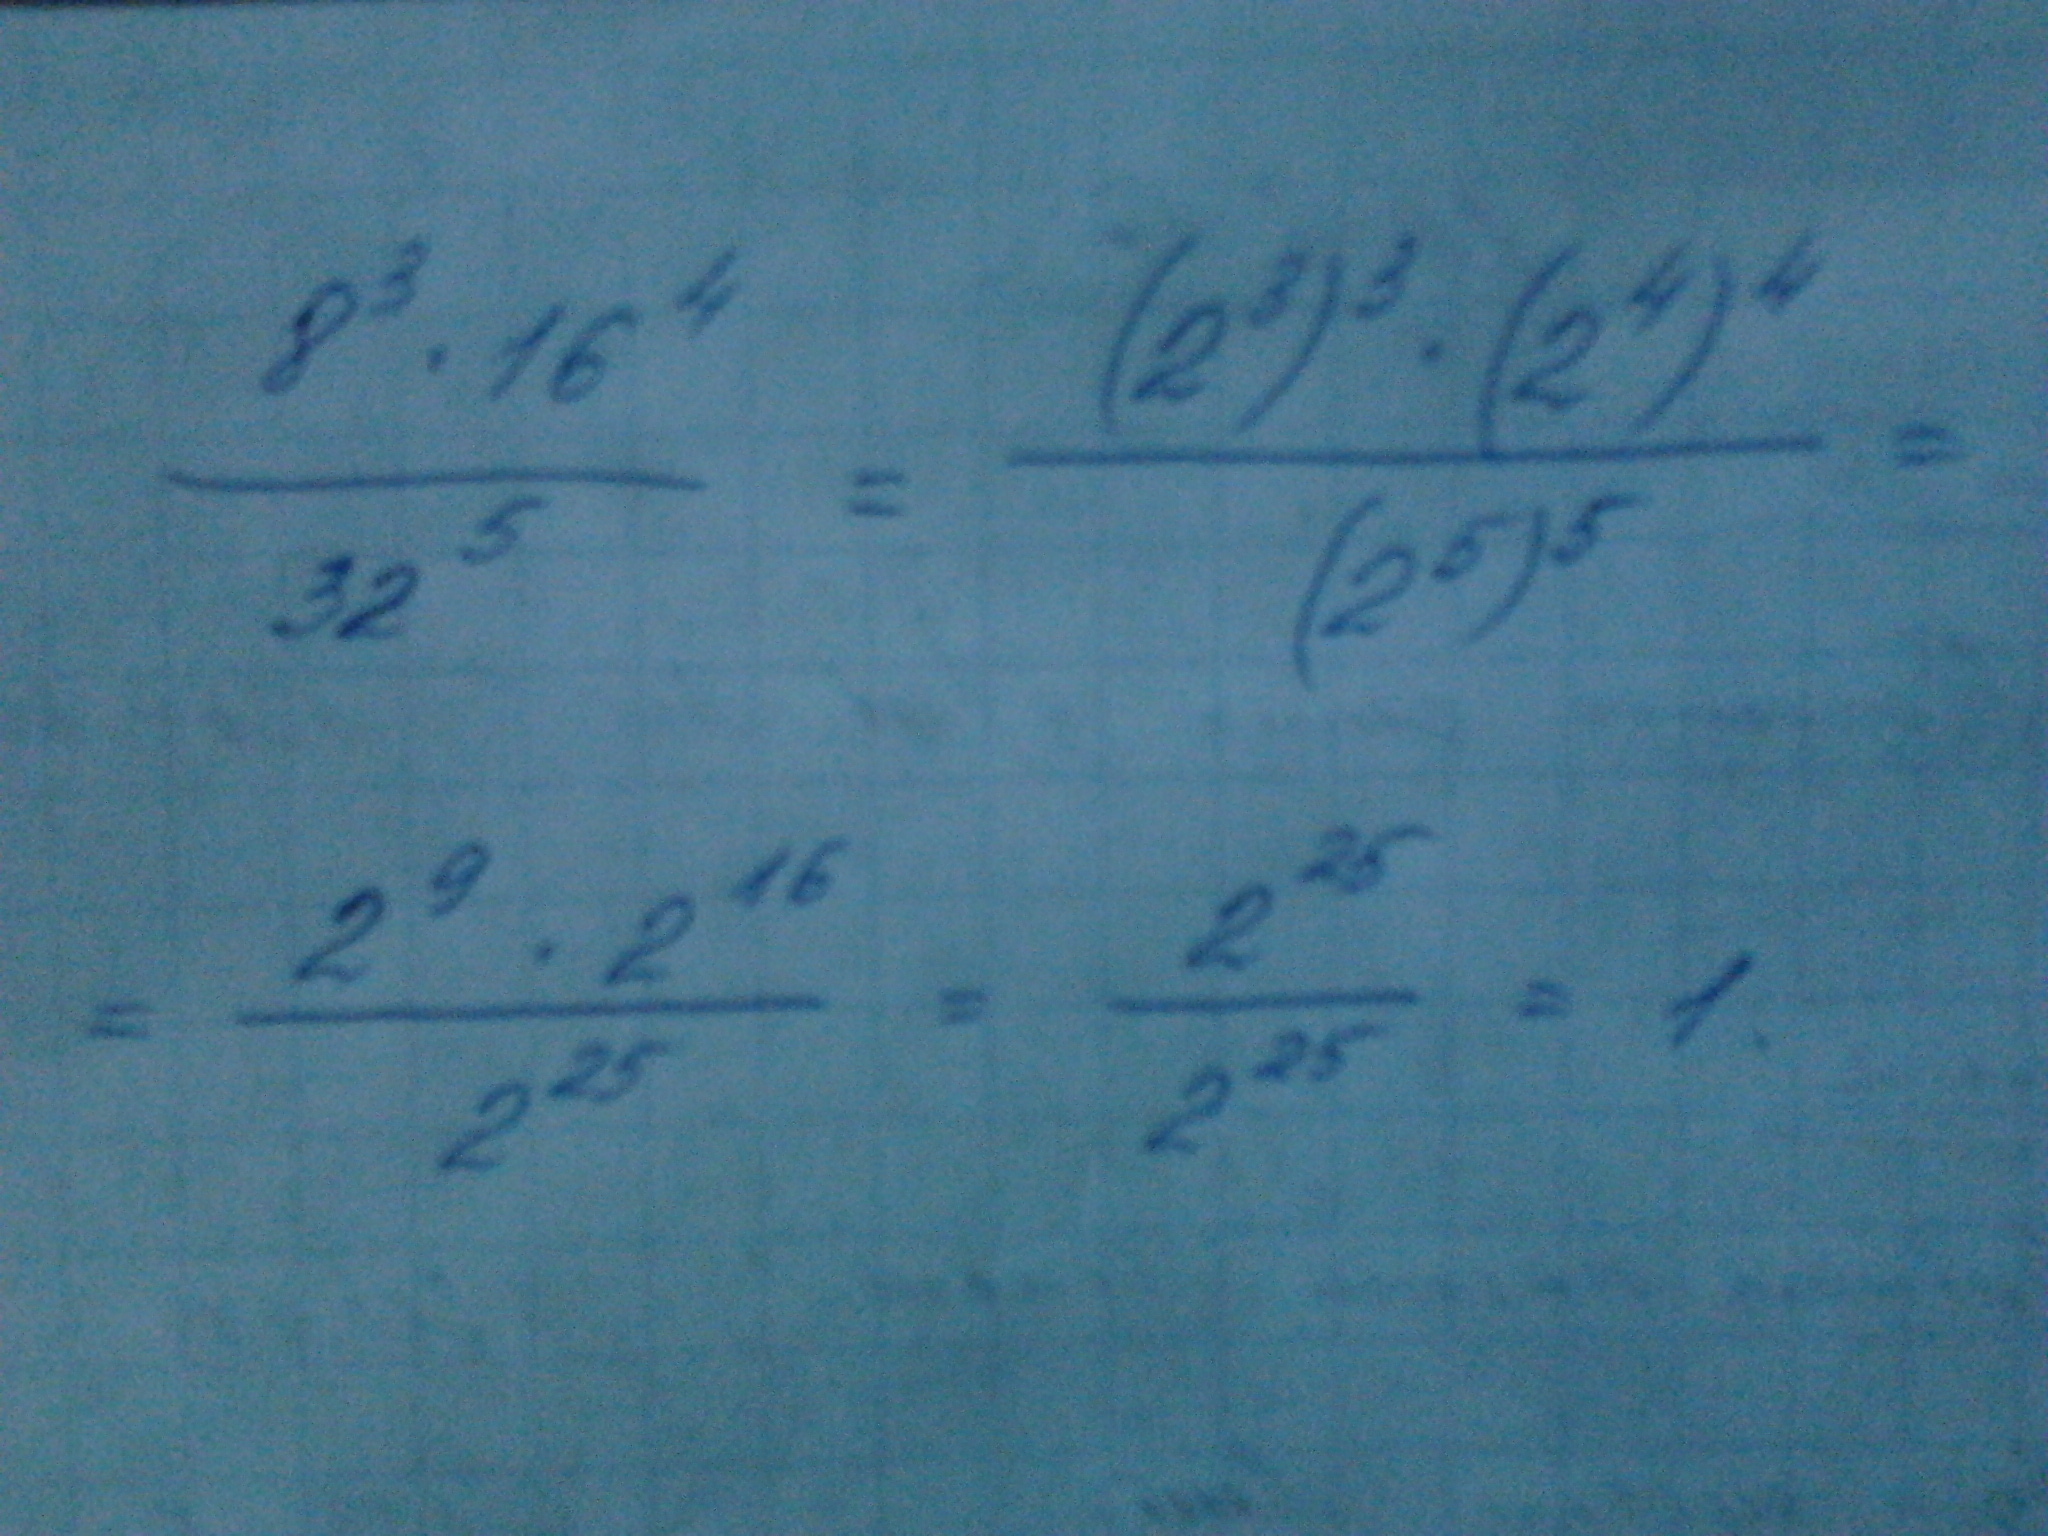 8³ · 16⁴ / 32⁵ = (2³)³ · (2⁴)⁴ / (2⁵)⁵ =
= 2⁹ · 2¹⁶ / 2²⁵ = 2²⁵ / 2²⁵ = 1.